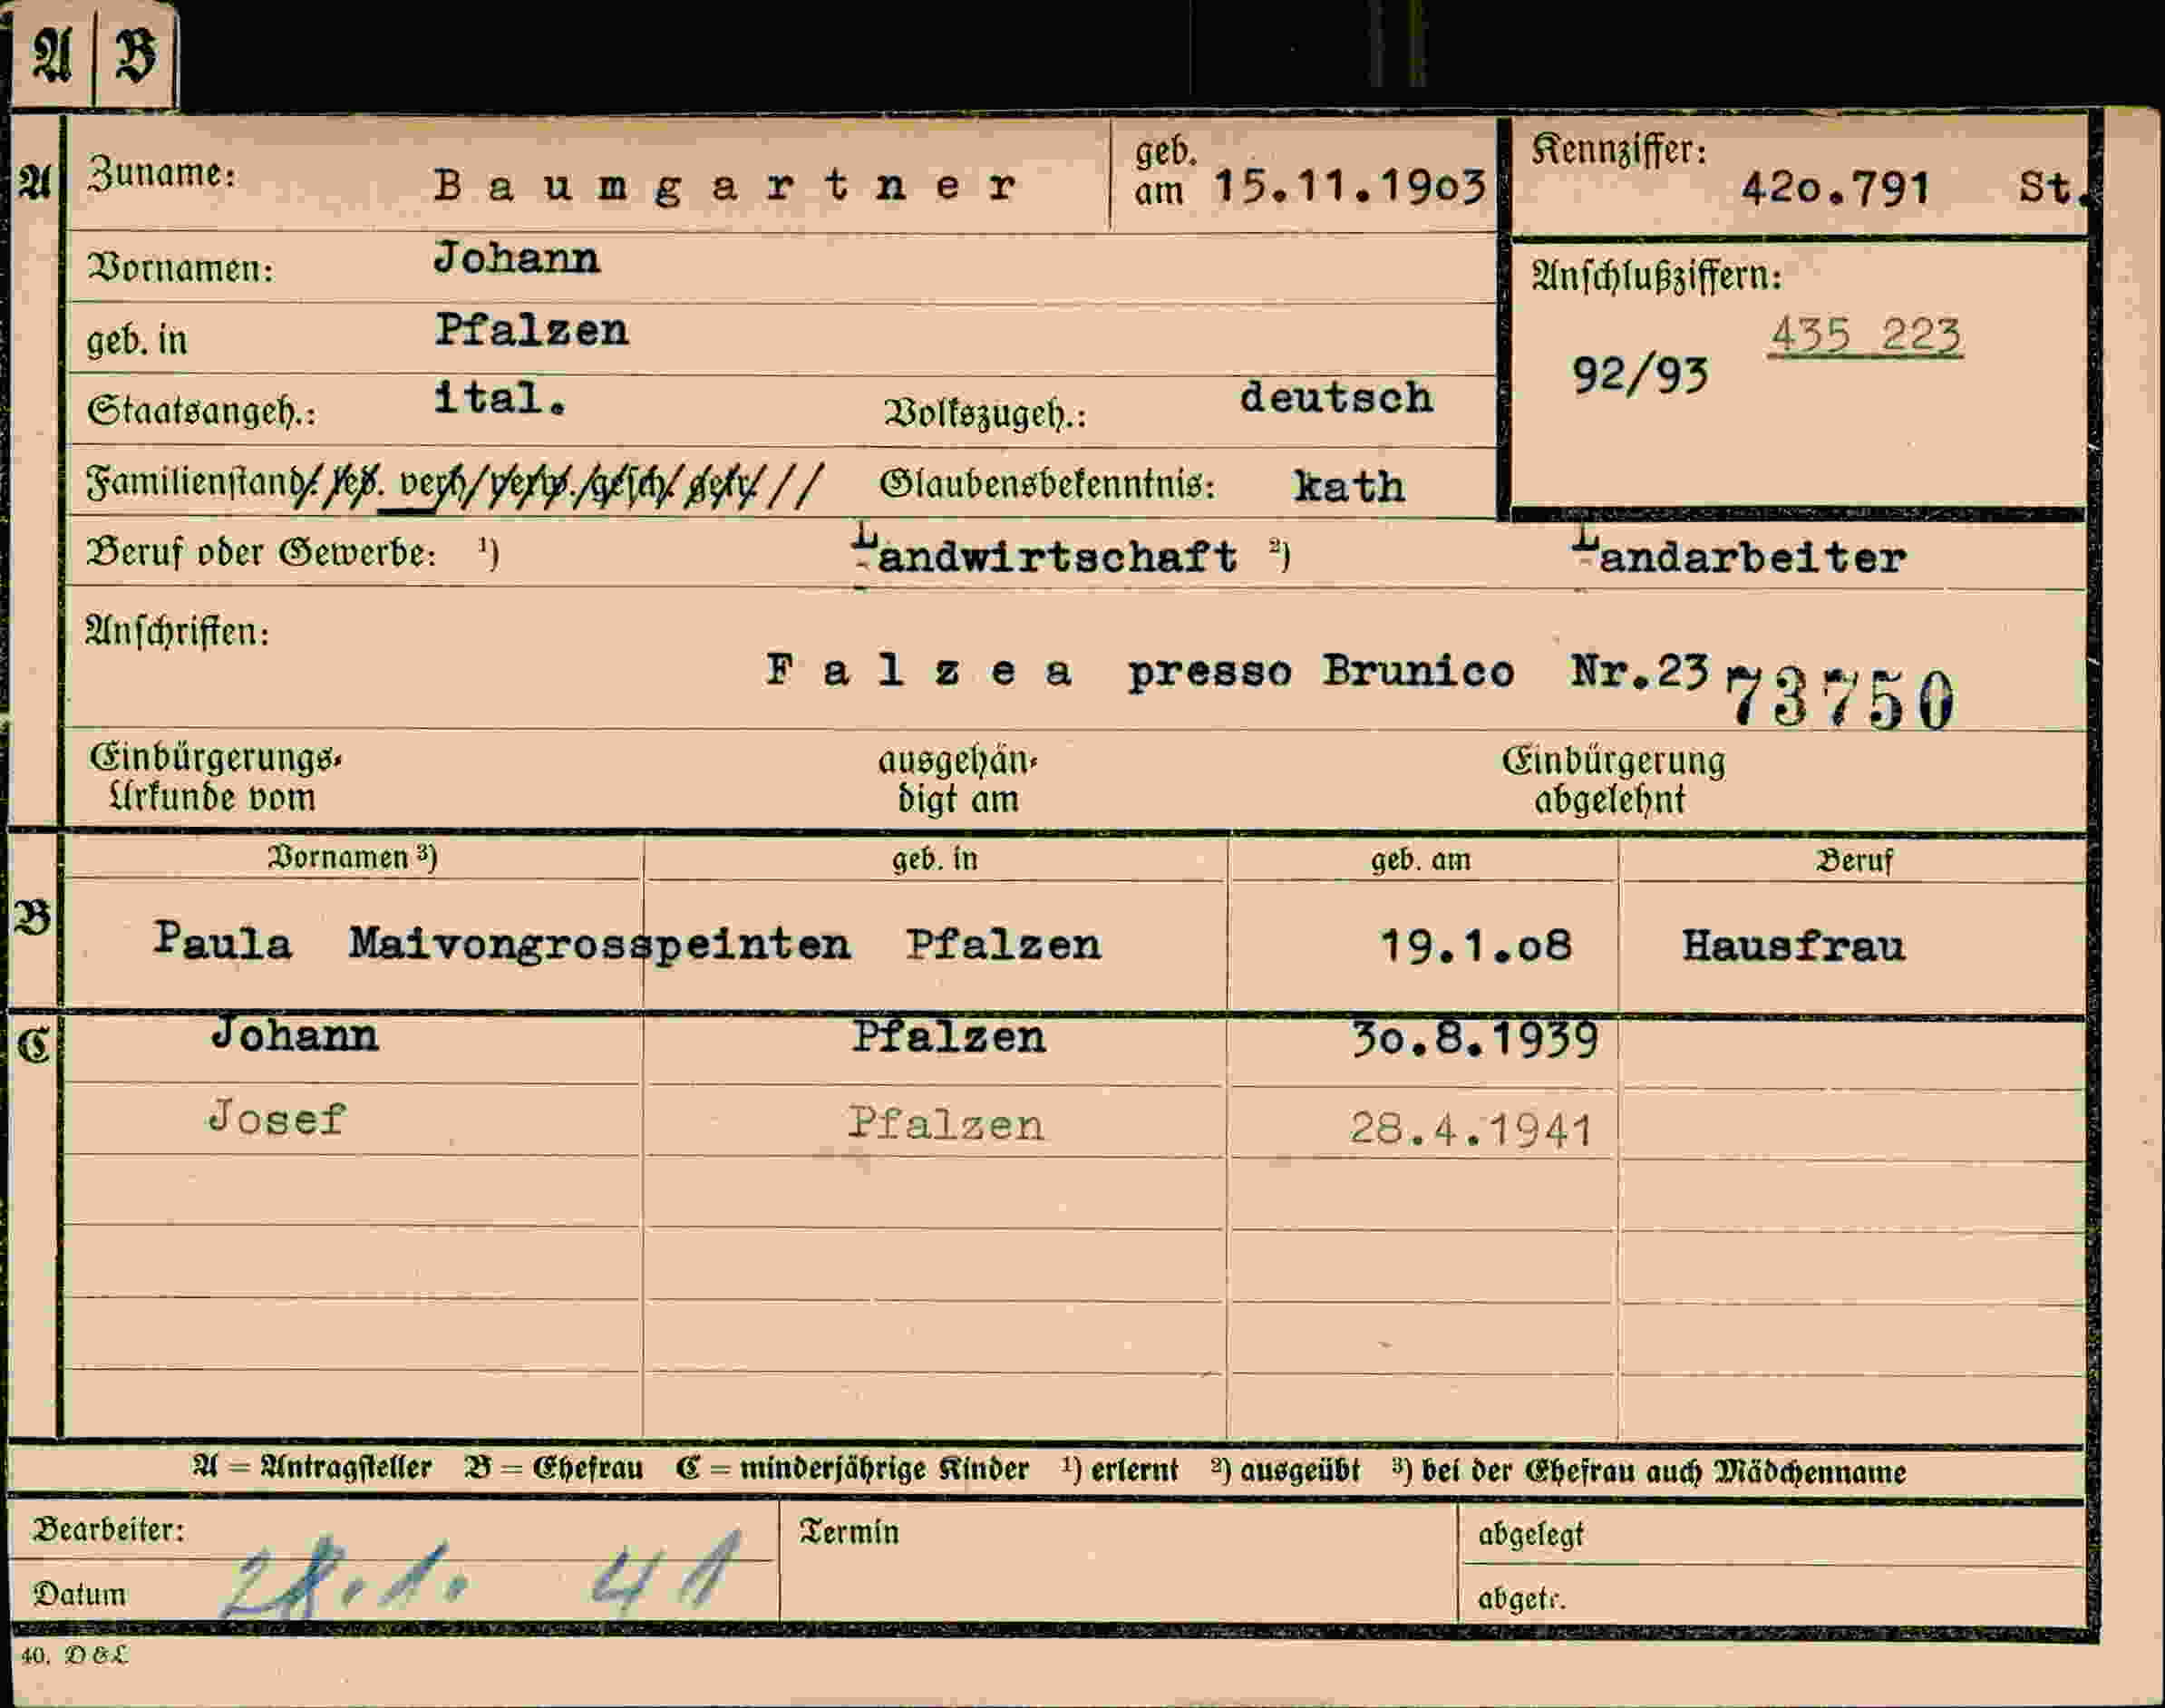 A B
A Zuname: Baumgartner geb. am 15.11.1903 Kennziffer: 42o.791 St.
Vornamen: Johann
geb. in Pfalzen
Anschlußziffern:
435 223
92/93
Staatsangeh.: ital. Volkszugeh.: deutsch
Familienstand: led. verh. verw. gesch. getr. Glaubensbekenntnis: kath
Beruf oder Gewerbe: ¹) Landwirtschaft ²) Landarbeiter
Anschriften:
Falzea presso Brunico Nr.23 73750
Einbürgerungs-Urkunde vom
ausgehändigt am
Einbürgerung abgelehnt
Vornamen ³) geb. in geb. am Beruf
B Paula Maivongrosspeinten Pfalzen 19.1.o8 Hausfrau
C Johann Pfalzen 3o.8.1939
Josef Pfalzen 28.4.1941
A = Antragsteller B = Ehefrau C = minderjährige Kinder ¹) erlernt ²) ausgeübt ³) bei der Ehefrau auch Mädchenname
Bearbeiter: Termin abgelegt
Datum 28.1. 41 abgetr.
40. D & L